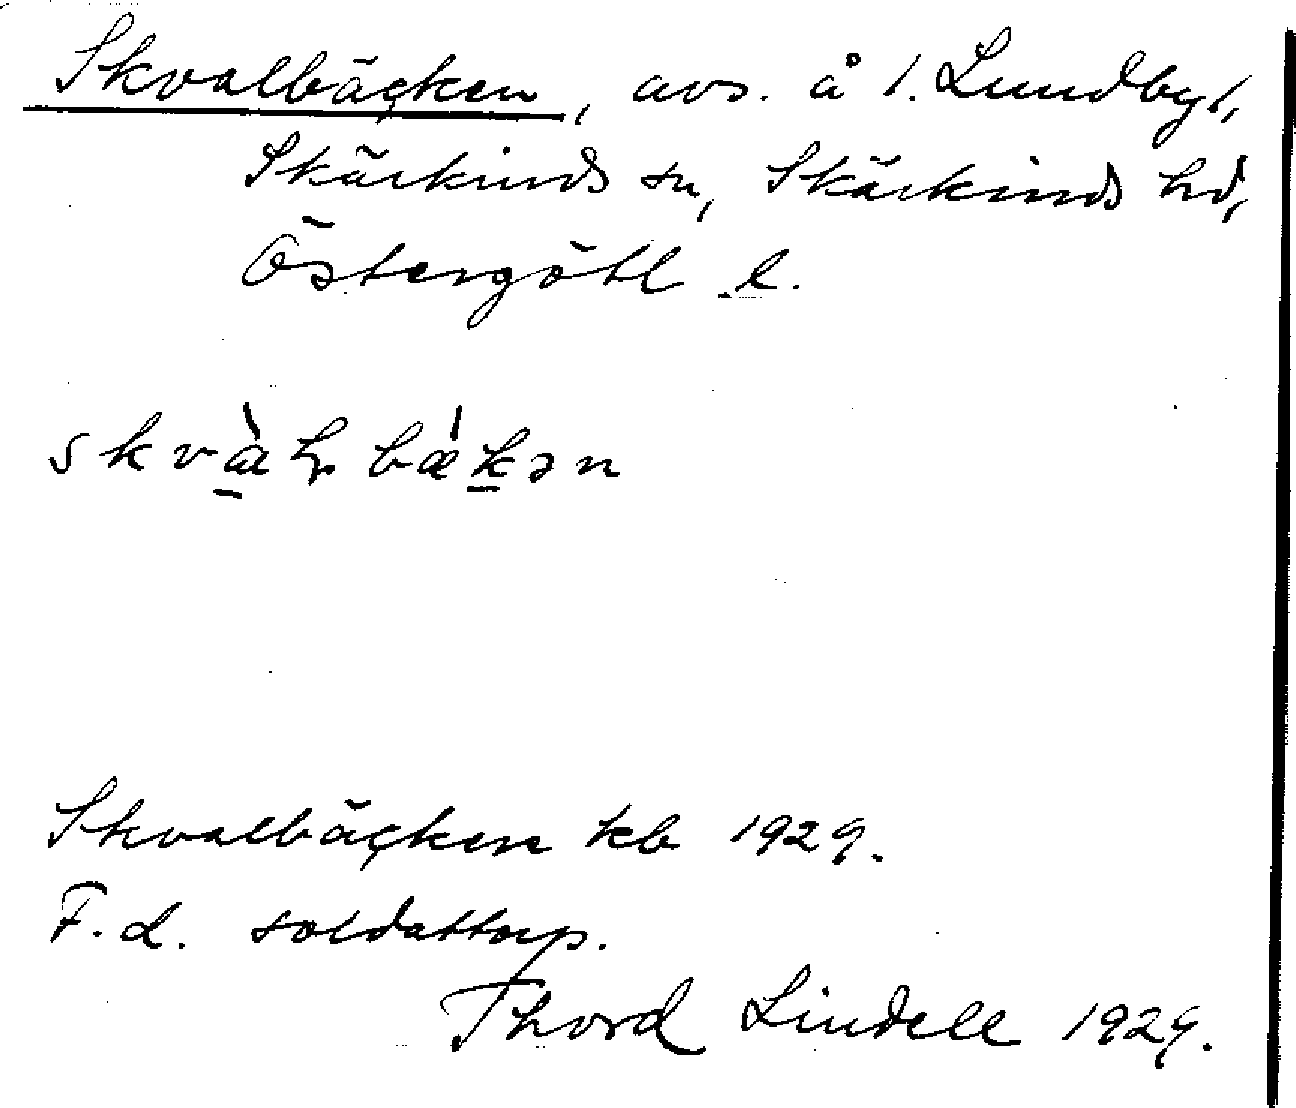 Skvalbäcken, avs. å 1. Lundby 1,
Skärkinds sn, Skärkinds hd,
Östergötl l.
skvàɫbǽkən
Skvalbäcken kb 1929.
F.d. soldattorp.
Thord Lindell 1929.